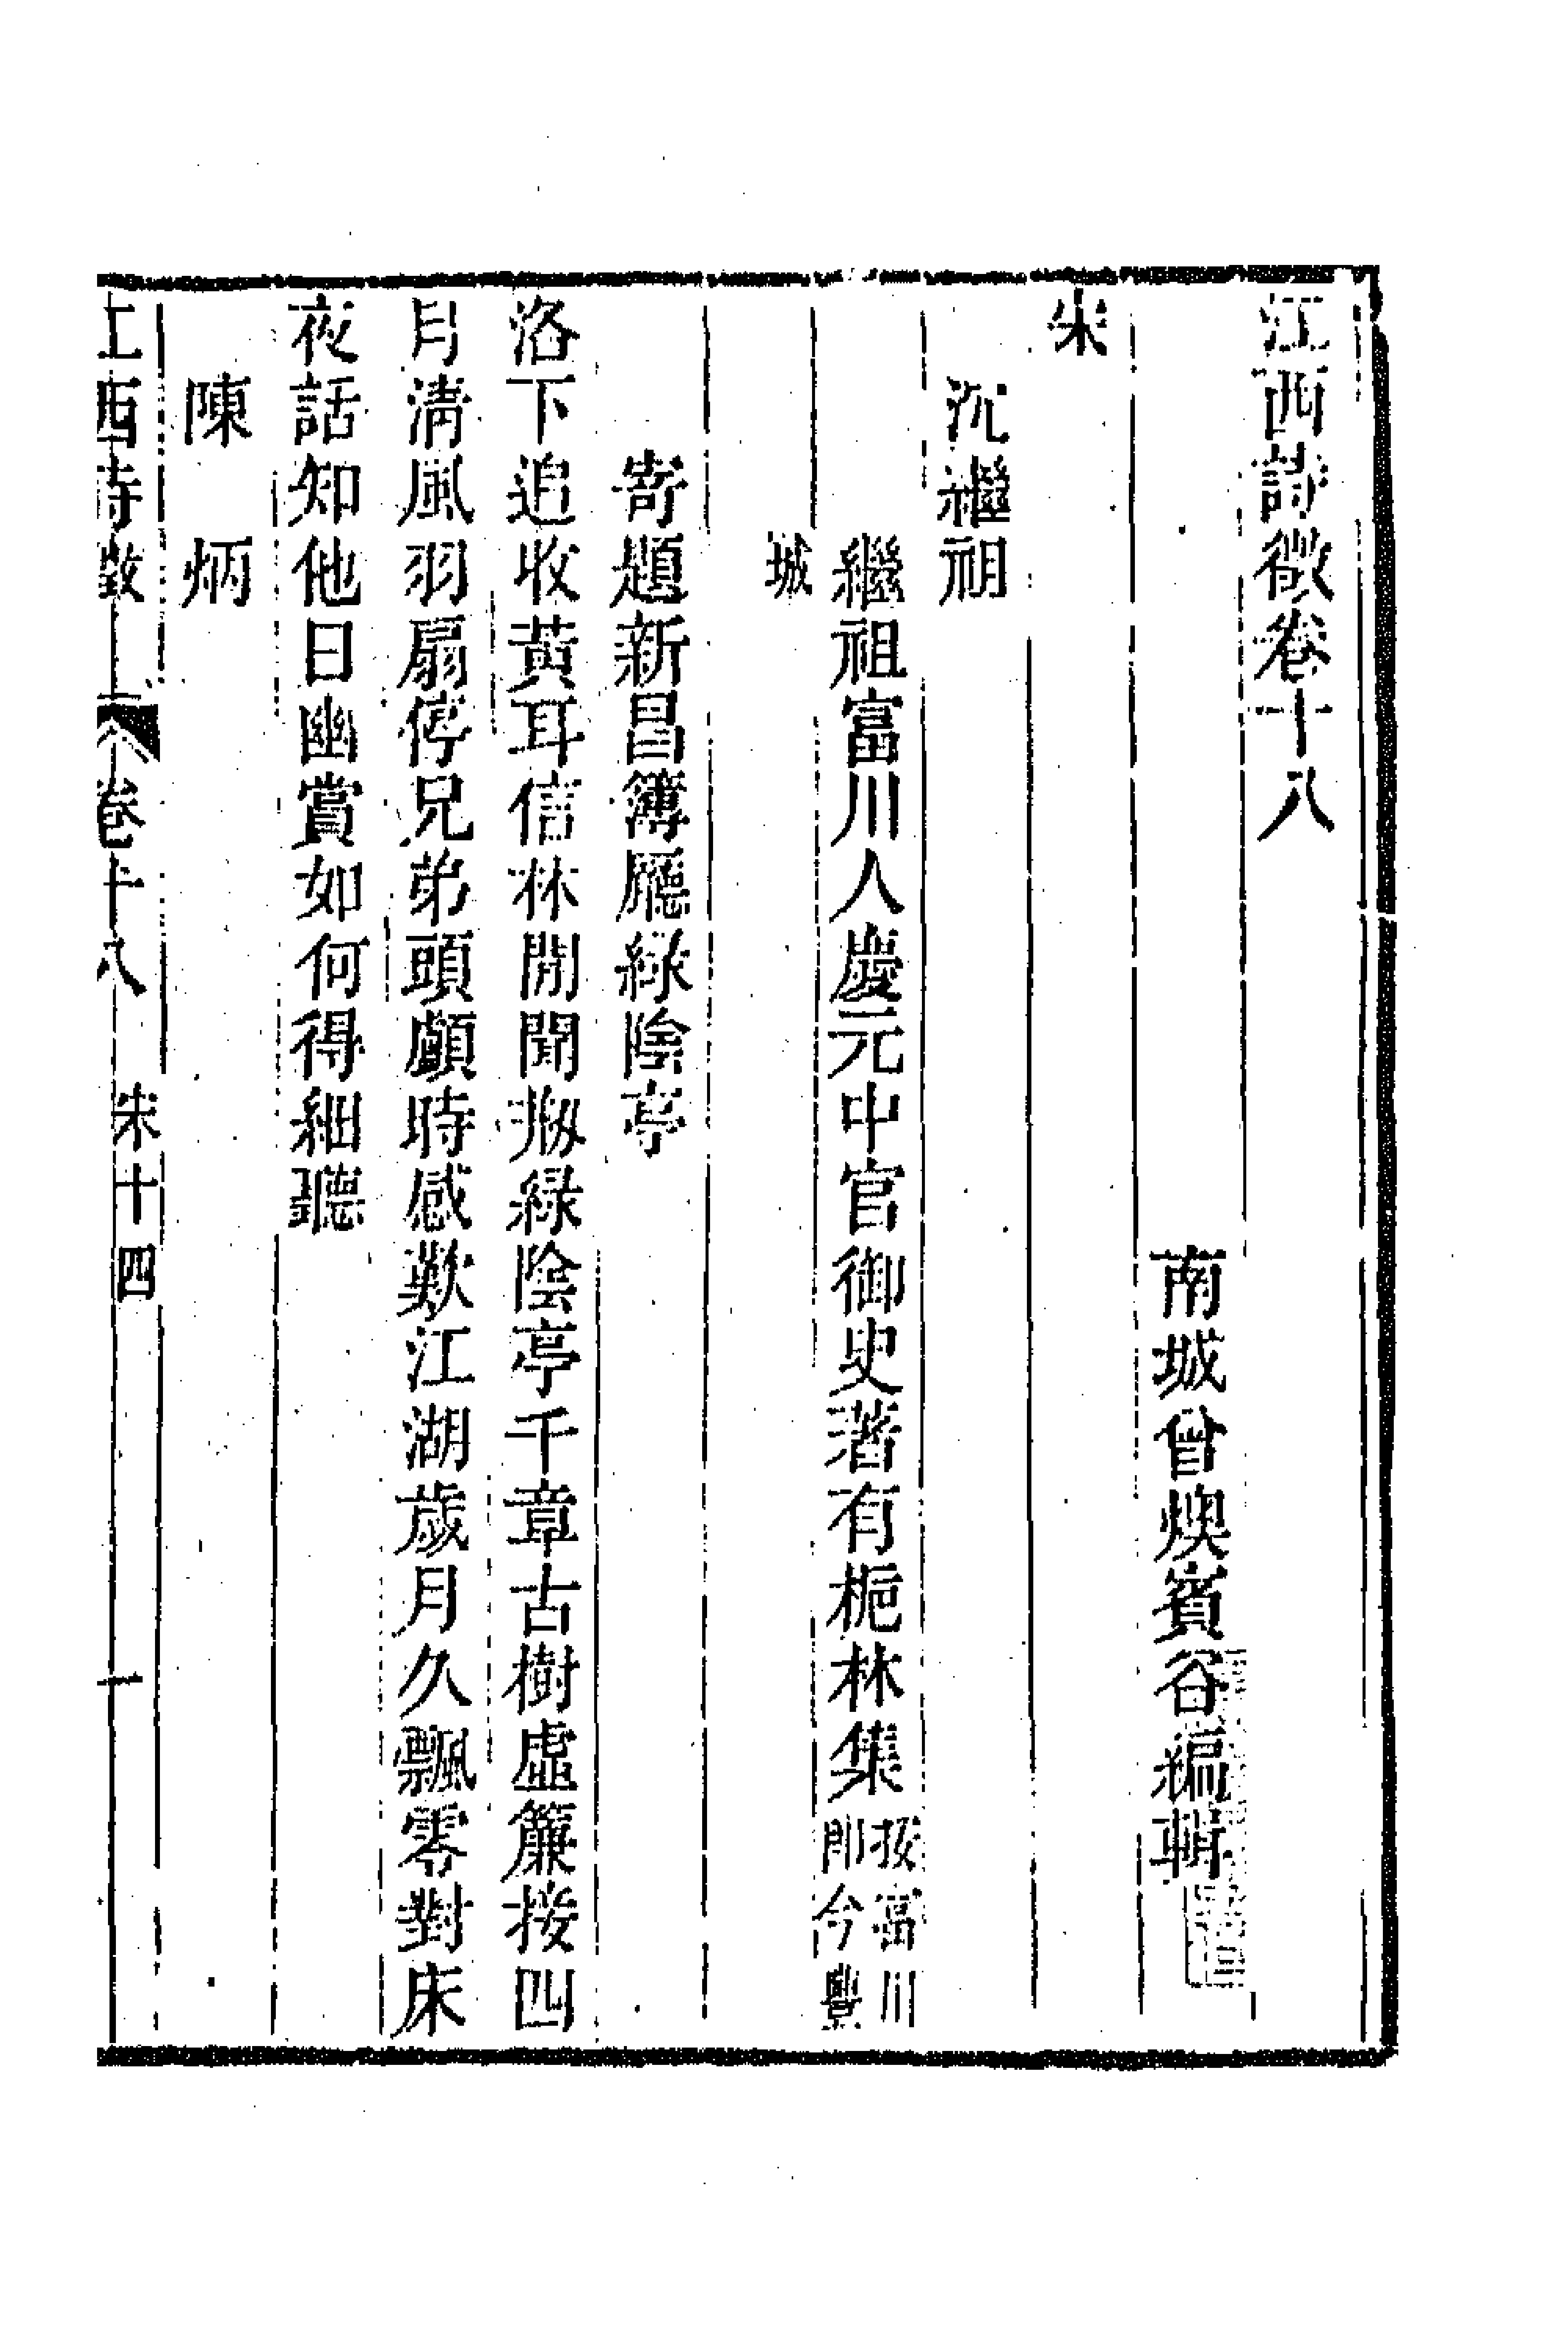 江西詩徵卷十八
南城曾燠賓谷編輯
宋
沈繼祖
繼祖富川人慶元中官御史著有梔林集按富川即今豐
城
寄題新昌簿廳綠陰亭
洛下追收黃耳信林間聞剏綠陰亭千章古樹虛簾接四
月清風羽扇停兄弟頭顱時感歎江湖歲月久飄零對床
夜話知他日幽賞如何得細聽
陳炳
江西詩徵 卷十八 宋十四 一